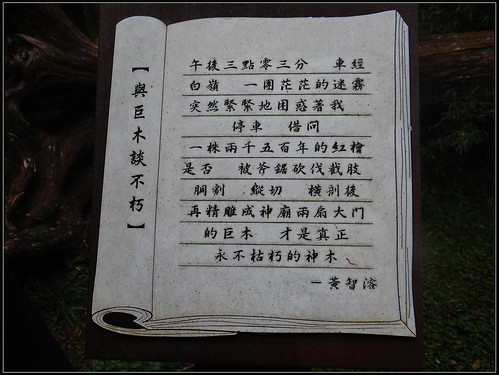 【與巨木談不朽】
午後三點零三分　車經
白嶺　一團茫茫的迷霧
突然緊緊地困惑著我
停車　借問
一株兩千五百年的紅檜
是否　被斧鋸砍伐截肢
胴剖　縱切　橫剖後
再精雕成神廟兩扇大門
的巨木　才是真正
永不枯朽的神木
－黃智溶